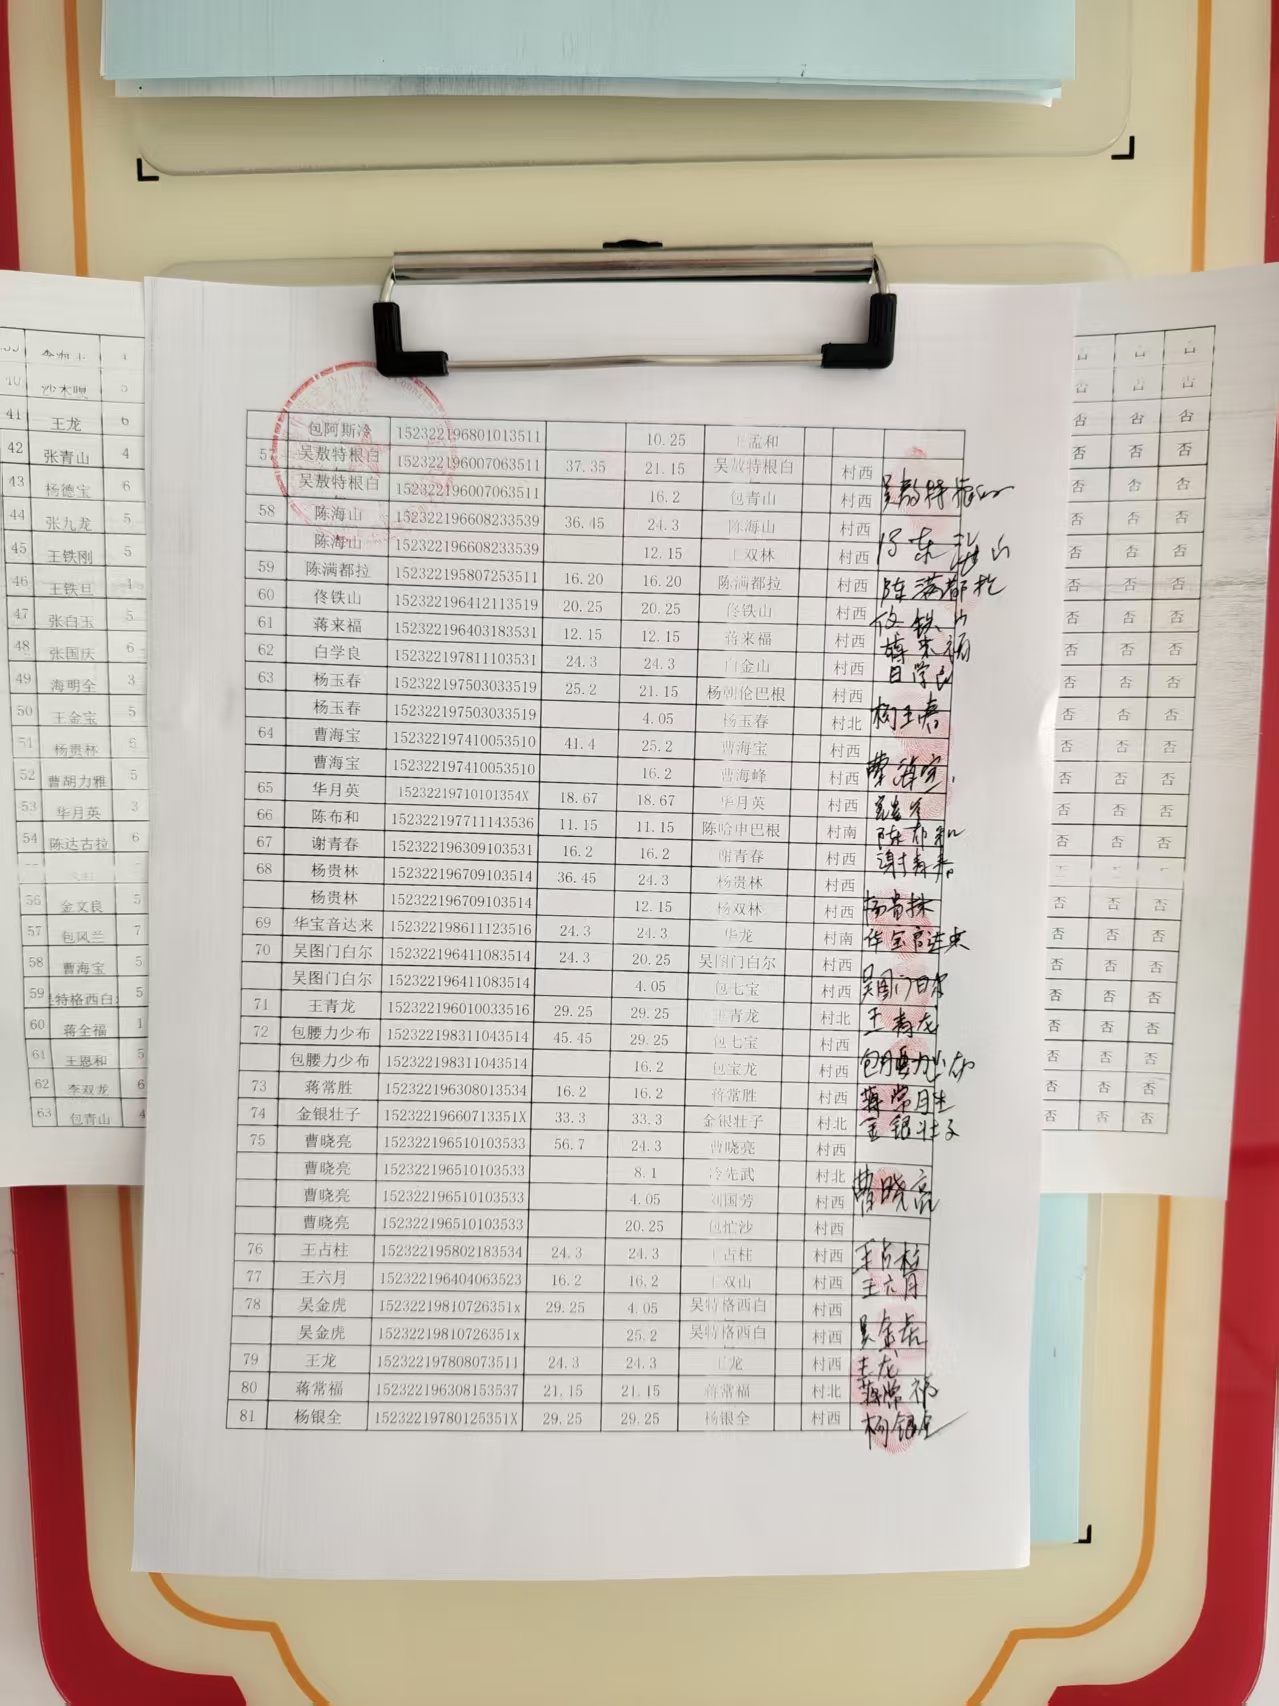 41 王龙 6
42 张青山 4
43 杨德宝 6
44 张九龙 5
45 王铁刚 5
46 王铁旦 1
47 张白玉 5
48 张国庆 6
49 海明全 3
50 王金宝 5
51 杨贵林 6
52 曹胡力雅 5
53 华月英 3
54 陈达古拉 6
56 金文良 5
57 包凤兰 7
58 曹海宝 5
59 特格西白 5
60 蒋全福 1
61 王恩和 5
62 李双龙 6
63 包青山 4
包阿斯冷 152322196801013511 10.25 王孟和
57 吴敖特根白 152322196007063511 37.35 21.15 吴敖特根白 村西
吴敖特根白 152322196007063511 16.2 包青山 村西 吴敖特根白
58 陈海山 152322196608233539 36.45 24.3 陈海山 村西
陈海山 152322196608233539 12.15 王双林 村西 陈海山
59 陈满都拉 152322195807253511 16.20 16.20 陈满都拉 村西 陈满都拉
60 佟铁山 152322196412113519 20.25 20.25 佟铁山 村西 佟铁山
61 蒋来福 152322196403183531 12.15 12.15 蒋来福 村西 蒋来福
62 白学良 152322197811103531 24.3 24.3 白金山 村西 白学良
63 杨玉春 152322197503033519 25.2 21.15 杨朝伦巴根 村西
杨玉春 152322197503033519 4.05 杨玉春 村北 杨玉春
64 曹海宝 152322197410053510 41.4 25.2 曹海宝 村西
曹海宝 152322197410053510 16.2 曹海峰 村西 曹海宝
65 华月英 15232219710101354X 18.67 18.67 华月英 村西
66 陈布和 152322197711143536 11.15 11.15 陈哈申巴根 村南 陈布和
67 谢青春 152322196309103531 16.2 16.2 谢青春 村西 谢青春
68 杨贵林 152322196709103514 36.45 24.3 杨贵林 村西
杨贵林 152322196709103514 12.15 杨双林 村西 杨贵林
69 华宝音达来 152322198611123516 24.3 24.3 华龙 村南 华宝音达来
70 吴图门白尔 152322196411083514 24.3 20.25 吴图门白尔 村西
吴图门白尔 152322196411083514 4.05 包七宝 村西 吴图门白尔
71 王青龙 152322196010033516 29.25 29.25 王青龙 村北 王青龙
72 包腰力少布 152322198311043514 45.45 29.25 包七宝 村西
包腰力少布 152322198311043514 16.2 包宝龙 村西 包腰力少布
73 蒋常胜 152322196308013534 16.2 16.2 蒋常胜 村西 蒋常胜
74 金银壮子 15232219660713351X 33.3 33.3 金银壮子 村北 金银壮子
75 曹晓亮 152322196510103533 56.7 24.3 曹晓亮 村西
曹晓亮 152322196510103533 8.1 冷先武 村北 曹晓亮
曹晓亮 152322196510103533 4.05 刘国芳 村西
曹晓亮 152322196510103533 20.25 包忙沙 村西
76 王占柱 152322195802183534 24.3 24.3 王占柱 村西 王占柱
77 王六月 152322196404063523 16.2 16.2 王双山 村西 王六月
78 吴金虎 15232219810726351x 29.25 4.05 吴特格西白 村西
吴金虎 15232219810726351x 25.2 吴特格西白 村西 吴金虎
79 王龙 152322197808073511 24.3 24.3 王龙 村西 王龙
80 蒋常福 152322196308153537 21.15 21.15 蒋常福 村北 蒋常福
81 杨银全 15232219780125351X 29.25 29.25 杨银全 村西 杨银全
否 否 否
否 否 否
否 否 否
否 否 否
否 否 否
否 否 否
否 否 否
否 否 否
否 否 否
否 否 否
否 否 否
否 否 否
否 否 否
否 否 否
否 否 否
否 否 否
否 否 否
否 否 否
否 否 否
否 否 否
否 否 否
否 否 否